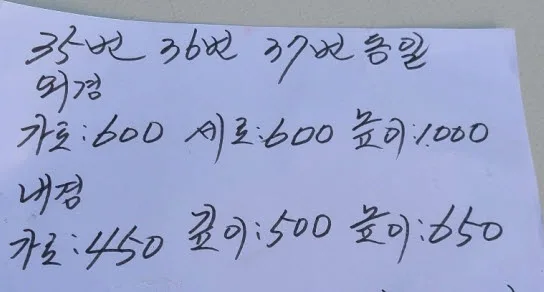 35번 36번 37번 동일
외경
가로:600 세로:600 높이:1.000
내경
가로:450 깊이:500 높이:650